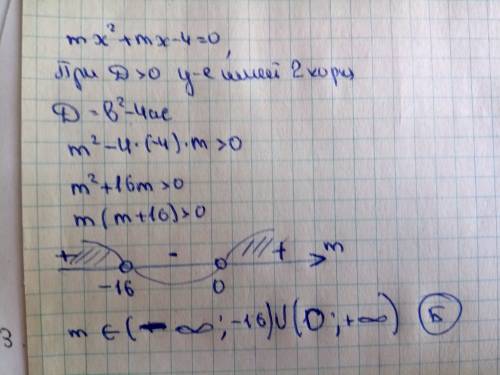 mx²+mx-4=0,
При D>0 ур-е имеет 2 корн
D = b²-4ac
m²-4·(-4)·m>0
m²+16m>0
m(m+16)>0
+ - + m
-16 0
m ∈ (-∞; -16)∪(0; +∞) Б
3